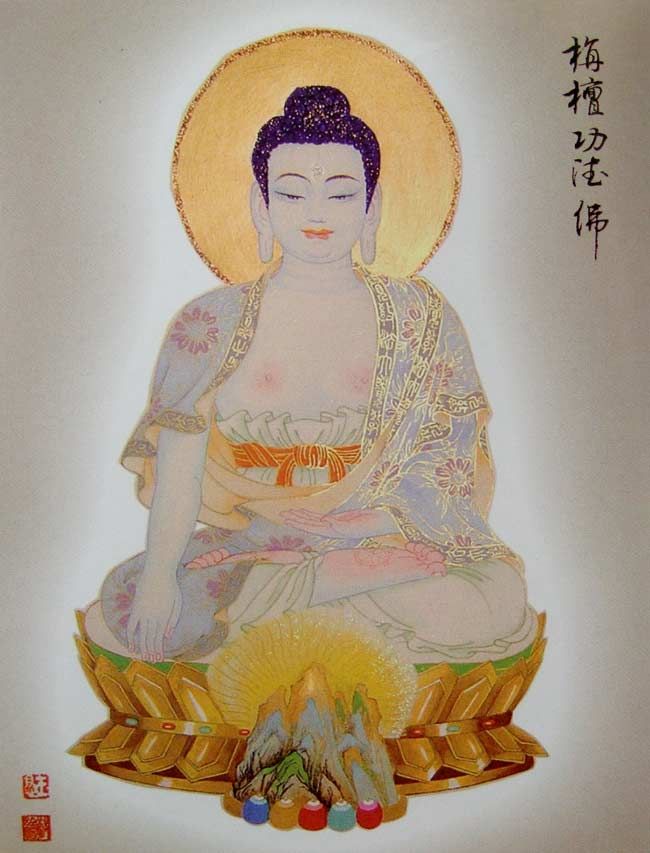 栴檀功德佛